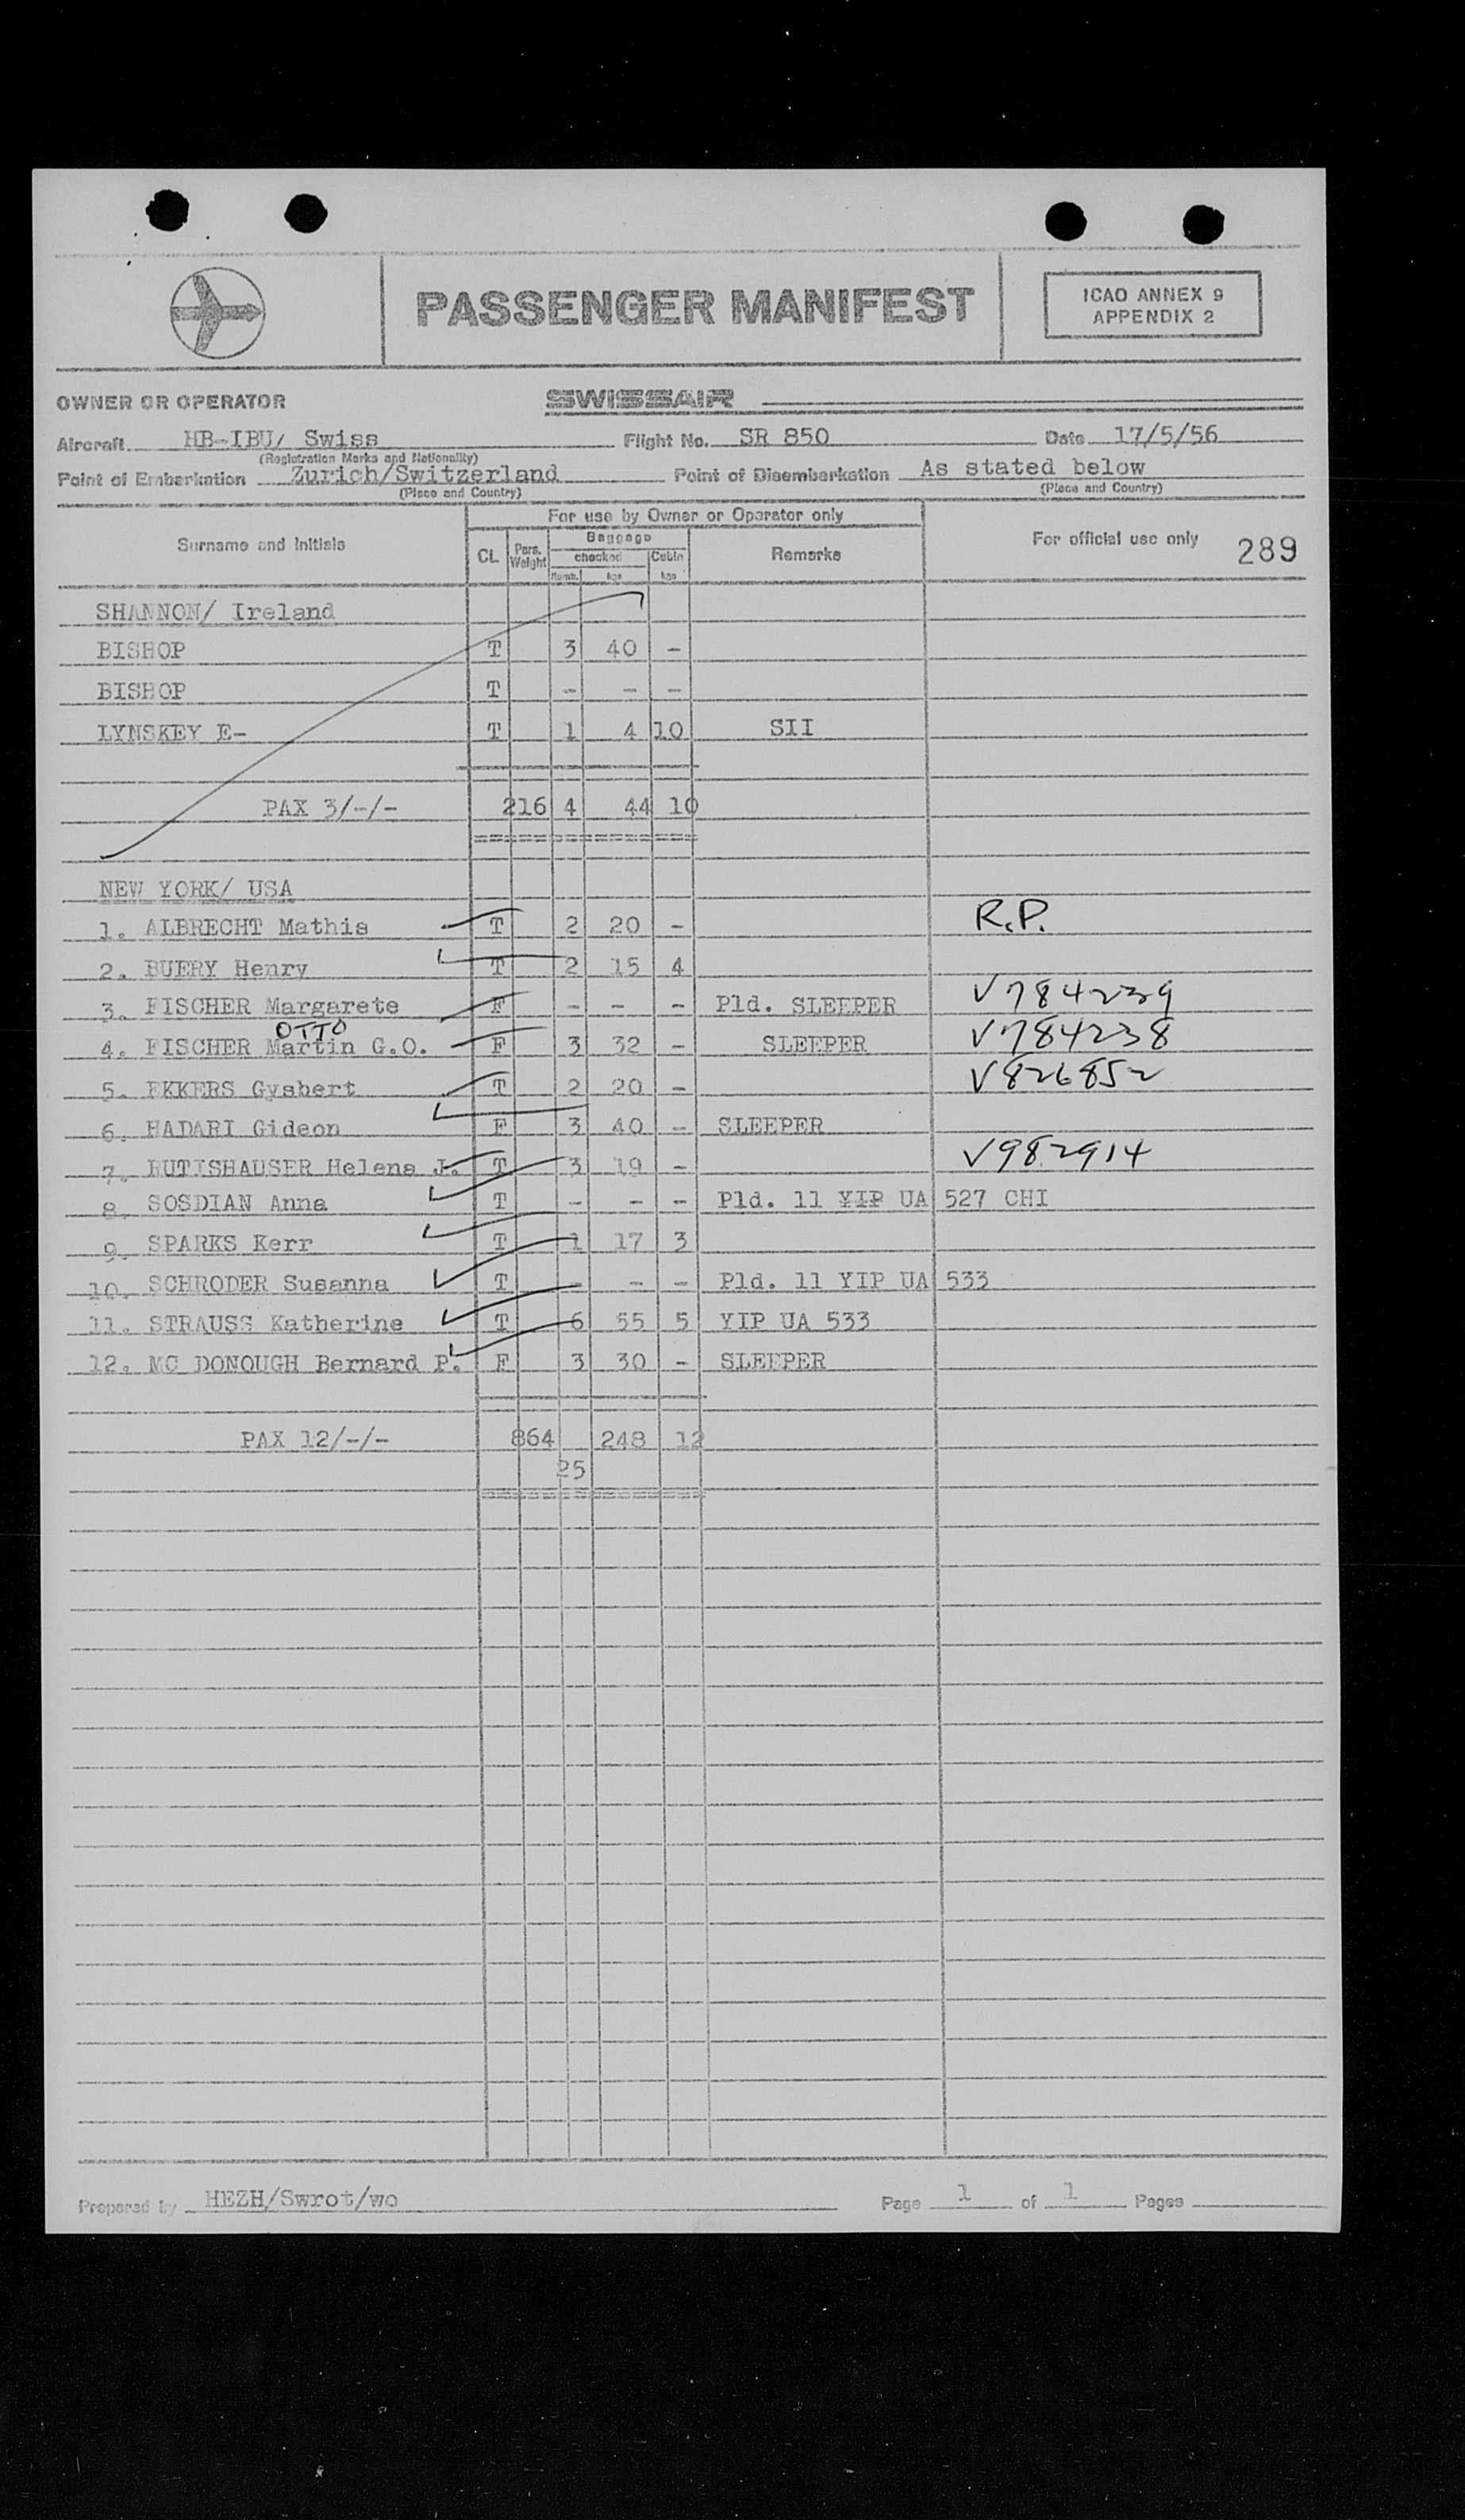 PASSENGER MANIFEST
ICAO ANNEX 9
APPENDIX 2
OWNER OR OPERATOR SWISSAIR
Aircraft HB-IBU/ Swiss Flight No. SR 850 Date 17/5/56
(Registration Marks and Nationality)
Point of Embarkation Zurich/Switzerland Point of Disembarkation As stated below
(Place and Country) (Place and Country)
For use by Owner or Operator only
Surname and Initials CL Pers. Weight Baggage checked Numb. kgs Cabin kgs Remarks For official use only 289
SHANNON/ Ireland
BISHOP T 3 40 -
BISHOP T - - -
LYNSKEY E- T 1 4 10 SII
PAX 3/-/- 216 4 44 10
NEW YORK/ USA
1. ALBRECHT Mathis T 2 20 - R.P.
2. BUERY Henry T 2 15 4
3. FISCHER Margarete F - - - Pld. SLEEPER V784239
OTTO
4. FISCHER Martin G.O. F 3 32 - SLEEPER V784238
5. EKKERS Gysbert T 2 20 - V826852
6. HADARI Gideon F 3 40 - SLEEPER
7. RUTISHAUSER Helena J. T 3 19 - V982914
8. SOSDIAN Anna T - - - Pld. 11 YIP UA 527 CHI
9. SPARKS Kerr T 1 17 3
10. SCHRODER Susanna T - - - Pld. 11 YIP UA 533
11. STRAUSS Katherine T 6 55 5 YIP UA 533
12. MC DONOUGH Bernard P. F 3 30 - SLEEPER
PAX 12/-/- 864 248 12
25
Prepared by HEZH/Swrot/wo Page 1 of 1 Pages